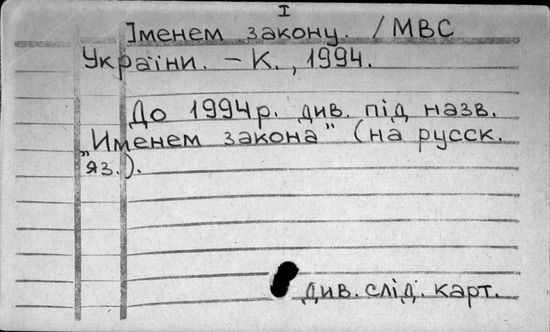 І
Іменем закону. / МВС
України. – К., 1994.
До 1994 р. див. під назв.
„Именем закона" (на русск.
яз.).
див. слід. карт.